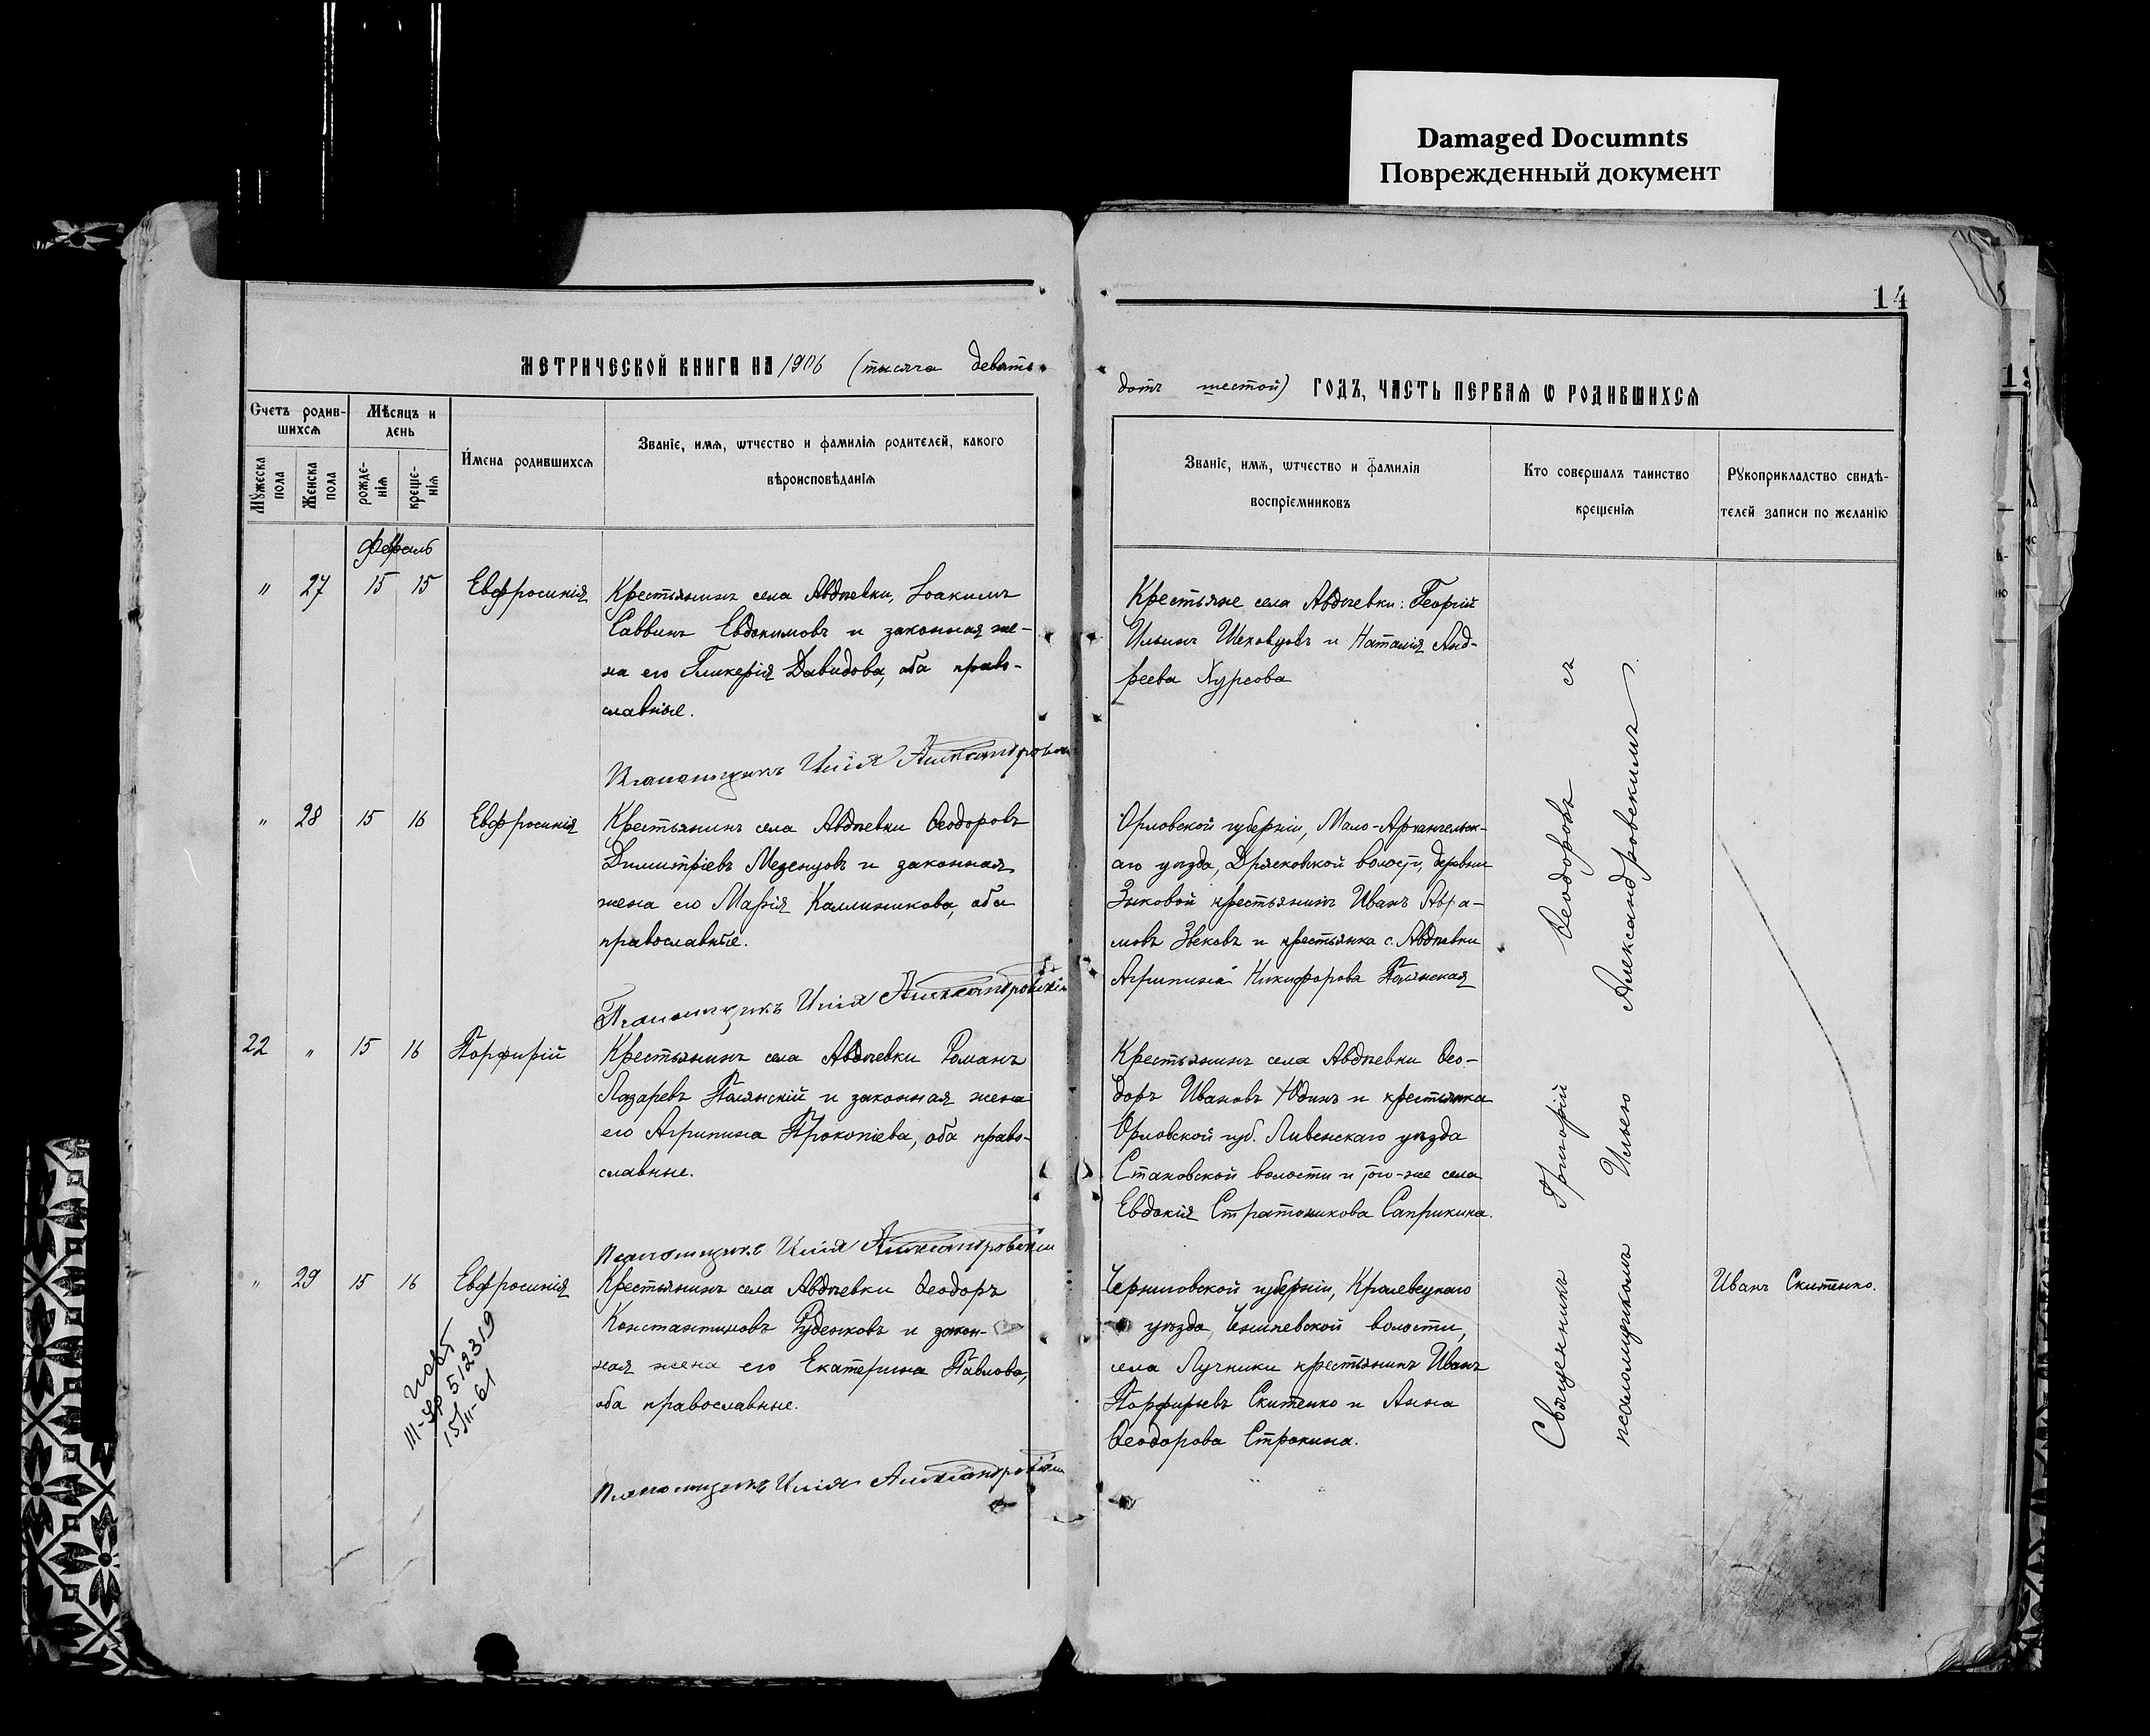 Damaged Documnts
Поврежденный документ
14
МЕТРИЧЕСКОЙ КНИГИ НА 1906 (тысяча девять
сотъ шестой) ГОДЪ, ЧАСТЬ ПЕРВАЯ Ѡ РОДИВШИХСЯ
Счетъ родив-
шихся
Мѣсяцъ и
день
Имена родившихся
Званіе, имя, ѡтчество и фамилія родителей, какого
вѣроисповѣданія
Мужеска
пола
Женска
пола
рожде-
нія
креще-
нія
Званіе, имя, ѡтчество и фамилія
воспріемниковъ
Кто совершалъ таинство
крещенія
Рукоприкладство свидѣ-
телей записи по желанію
Февраль
" 27 15 15 Евфросинія
Крестьянинъ села Авдѣевки, Іоакимъ
Саввинъ Евдокимовъ и законная же-
на его Гликерія Давидова, оба право-
славные.
Псаломщикъ Илія Александровскій
Крестьяне села Авдѣевки: Георгій
Ильинъ Шеховцовъ и Наталія Анд-
реева Хурсова
" 28 15 16 Евфросинія
Крестьянинъ села Авдѣевки Ѳеодоръ
Димитріевъ Мезенцовъ и законная
жена его Марія Каллиникова, оба
православные.
Псаломщикъ Илія Александровскій
Орловской губерніи, Мало-Архангельск-
аго уѣзда, Дросковской волости, деревни
Зыковой крестьянинъ Иванъ Авра-
мовъ Звековъ и крестьянка с. Авдѣевки
Агрипина Никифорова Полянская
22 " 15 16 Порфирій
Крестьянинъ села Авдѣевки Романъ
Лазаревъ Полянскій и законная жена
его Агрипина Прокопіева, оба право-
славные.
Псаломщикъ Илія Александровскій
Крестьянинъ села Авдѣевки Ѳео-
доръ Ивановъ Юдинъ и крестьянка
Орловской губ. Ливенскаго уѣзда
Становской волости и того-же села
Евдокія Стратоникова Саприкина.
" 29 15 16 Евфросинія
Крестьянинъ села Авдѣевки Ѳеодоръ
Константиновъ Руденковъ и закон-
ная жена его Екатерина Павлова,
оба православные.
Псаломщикъ Илія Александровскій
III-ЯР 512319
15/II-61
Черниговской губерніи, Кролевецкаго
уѣзда, волости,
села Лучники крестьянинъ Иванъ
Порфирьевъ Скитенко и Анна
Ѳеодорова Строкина.
Иванъ Скитенко.
Священникъ Григорій Ѳеодоровъ съ
псаломщикомъ Ильею Александровскимъ.